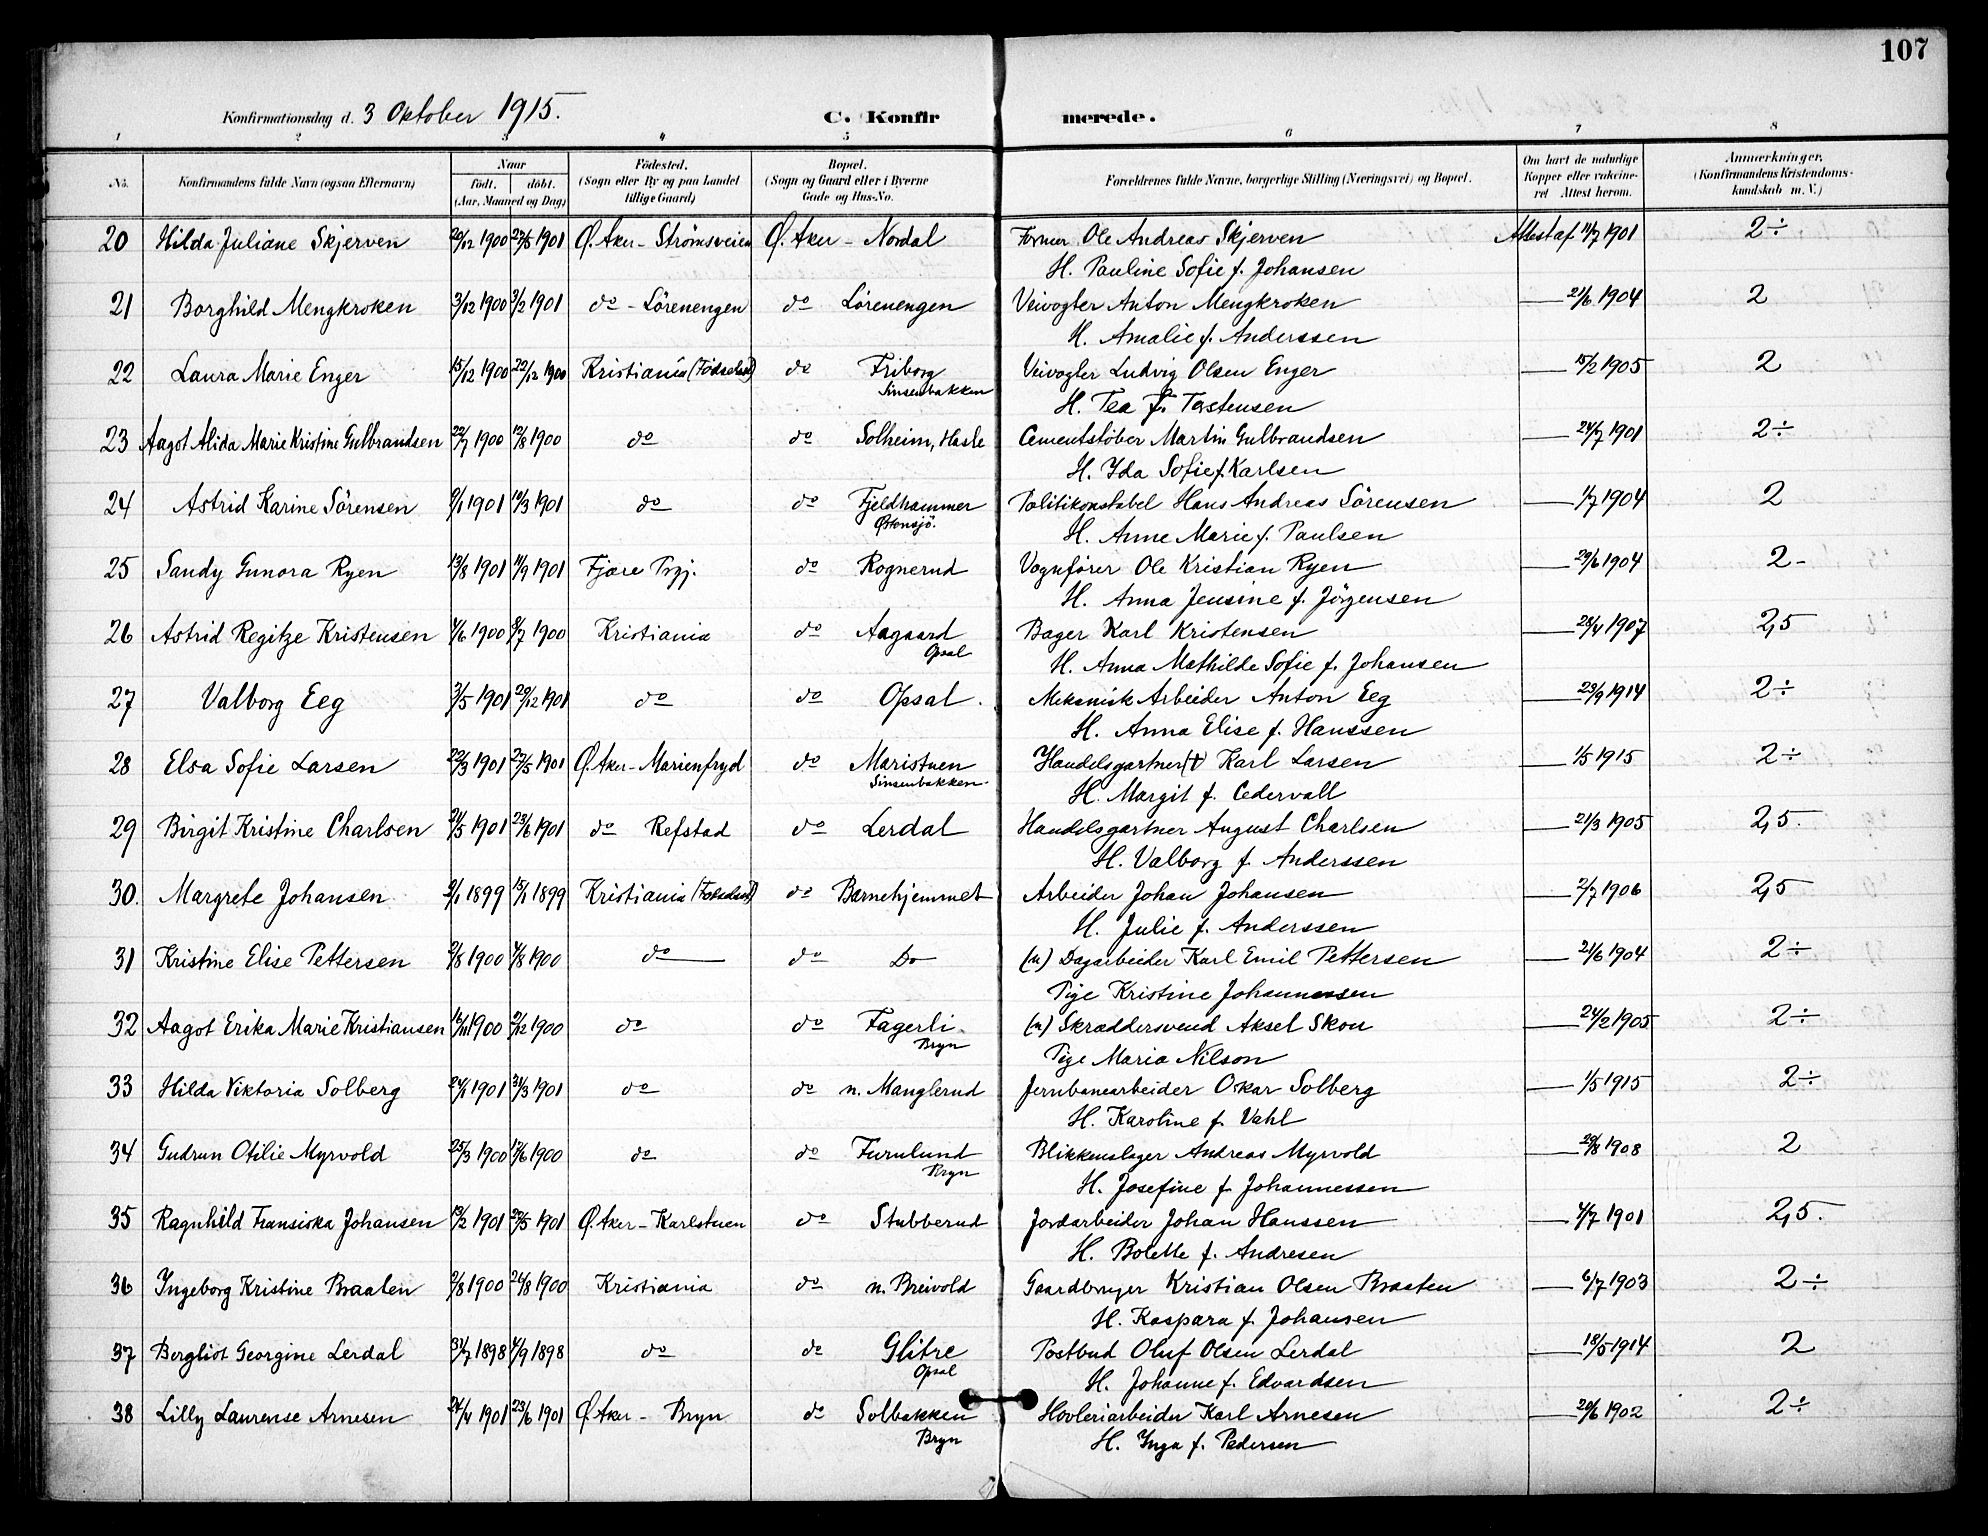 107
Konfirmationsdag d. 3 Oktober 1915. C. Konfir merede.
1 2 3 4 5 6 7 8
No. Konfirmandens fulde Navn (ogsaa Efternavn) Naar født. døbt. (Aar, Maaned og Dag) Fødested. (Sogn eller By og paa Landet tillige Gaard) Bopæl. (Sogn og Gaard eller i Byerne Gade og Hus-No. Forældrenes fulde Navne, borgerlige Stilling (Næringsvei) og Bopæl. Om havt de naturlige Kopper eller vakcineret Attest herom. Anmærkninger. (Konfirmandens Kristendomskundskab m. V.)
20 Hilda Juliane Skjerven 20/12 1900 27/5 1901 Ø. Aker - Strömsveien Ø. Aker - Nordal Former Ole Andreas Skjerven Attest af 11/7 1901 2÷
H. Pauline Sofie f. Johansen
21 Borghild Mengkroken 3/12 1900 3/2 1901 do - Lörenengen do Lörenengen Veivogter Anton Mengkroken — 21/6 1904 2
H. Amalie f. Anderssen
22 Laura Marie Enger 15/12 1900 22/12 1900 Kristiania (Födselsst) do Friborg Veivogter Ludvig Olsen Enger — 15/2 1905 2
Sinsenbakken
H. Tea f. Torstensen
23 Aagot Alida Marie Kristine Gulbrandsen 22/7 1900 12/8 1900 do do Solheim, Hasle Cementstöber Martin Gulbrandsen — 24/7 1901 2÷
H. Ida Sofie f. Karlsen
24 Astrid Karine Sörensen 9/1 1901 10/3 1901 do do Fjeldhammer Politikonstabel Hans Andreas Sörensen — 1/7 1904 2
Østensjö.
H. Anne Marie f. Paulsen
25 Sandy Gunora Ryen 13/8 1901 11/9 1901 Fjære do Rognerud Vognfører Ole Kristian Ryen — 29/6 1904 2-
H. Anna Jensine f. Jörgensen
26 Astrid Regitze Kristensen 4/6 1900 8/7 1900 Kristiania do Aagaard Bager Karl Kristensen — 28/4 1907 2,5
Opsal
H. Anna Mathilde Sofie f. Johansen
27 Valborg Eeg 3/5 1901 29/12 1901 do do Opsal. Mekanisk Arbeider Anton Eeg — 23/9 1914 2÷
H. Anna Elise f. Hanssen
28 Elsa Sofie Larsen 22/3 1901 27/5 1901 Ø. Aker - Marienfryd do Maristuen Handelsgartner (†) Karl Larsen — 1/5 1915 2÷
Sinsenbakken
H. Margit f. Cedervall
29 Birgit Kristine Charlsen 21/5 1901 23/6 1901 do Refstad do Lerdal Handelsgartner August Charlsen — 21/3 1905 2,5.
H. Valborg f. Anderssen
30. Margrete Johansen 9/1 1899 15/1 1899 Kristiania (Födselsst) do Barnehjemmet Arbeider Johan Johansen — 2/7 1906 2,5
H. Julie f. Anderssen
31 Kristine Elise Pettersen 2/8 1900 4/8 1900 do do Do (u) Dagarbeider Karl Emil Pettersen — 21/6 1904 2÷
Pige Kristine Johannessen
32 Aagot Erika Marie Kristiansen 16/11 1900 2/12 1900 do do Fagerli (u) Skræddersvend Aksel Skou — 24/2 1905 2÷
Bryn
Pige Maria Nilson
33 Hilda Viktoria Solberg 24/1 1901 31/3 1901 do do n. Manglerud Jernbanearbeider Oskar Solberg — 1/5 1915 2÷
H. Karoline f. Vahl
34 Gudrun Otilie Myrvold 25/3 1900 17/6 1900 do do Furulund Blikkenslager Andreas Myrvold — 29/8 1908 2
Bryn
H. Josefine f. Johannessen
35 Ragnhild Fransiska Johansen 19/2 1901 27/5 1901 Ø. Aker - Karlstuen do Stubberud Jordarbeider Johan Hanssen — 4/7 1901 2,5.
H. Bolette f. Andresen
36 Ingeborg Kristine Braaten 2/8 1900 24/8 1900 Kristiania do n. Breivold Gaardbruger Kristian Olsen Braaten — 6/7 1903 2÷
H. Kaspara f. Johansen
37 Bergliot Georgine Lerdal 31/7 1898 4/9 1898 do do Glitre Postbud Oluf Olsen Lerdal — 18/5 1914 2
Opsal
H. Johanne f. Edvardsen
38 Lilly Laurense Arnesen 24/4 1901 23/6 1901 Ø. Aker - Bryn do Solbakken Hovleriarbeider Karl Arnesen — 20/6 1902 2÷
Bryn
H. Inga f. Pedersen